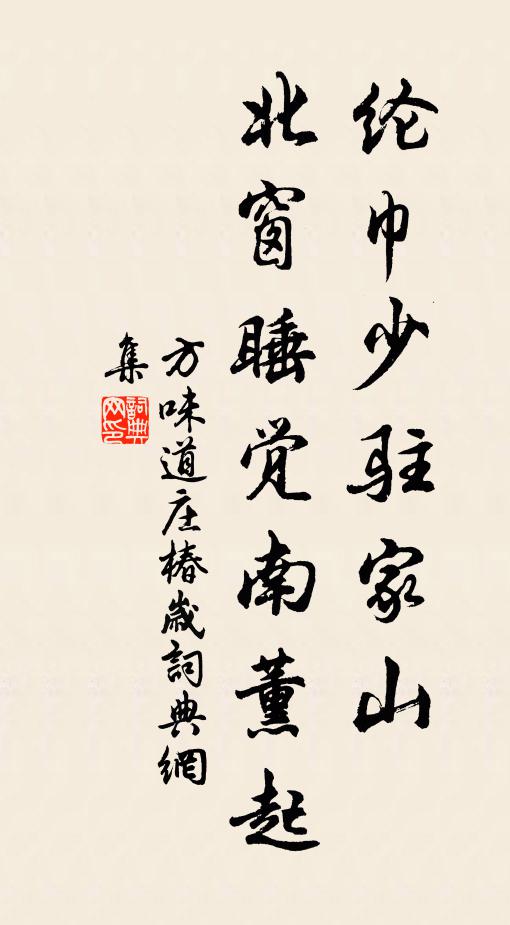 纶巾少驻家山
北窗睡觉南薰起
方味道庄椿岁詞典網
集
詞典网印